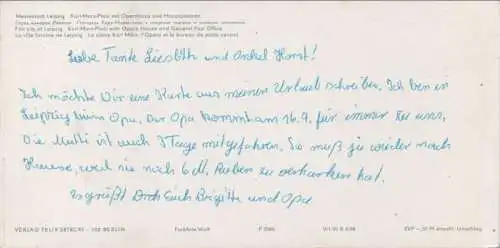 Messestadt Leipzig Karl-Marx-Platz mit Opernhaus und Hauptpostamt
Fair city of Leipzig Karl-Marx-Platz with Opera House and General Post Office
La ville foraine de Leipzig La place Karl Marx, l'Opéra et le bureau de poste central
Liebe Tante Lieslbth und Onkel Horst!
Ich möchte Dir eine Karte aus meinen Urlaub schreiben. Ich bin in
Leipzig beim Opa. Der Opa kommt am 16.9. für immer zu uns.
Die Mutti ist auch 3 Tage mitgefahren. Sie muß ja wieder nach
Hause, weil sie noch 6 dl. Rüben zu verhacken hat.
Es grüßt Dich Euch Brigitte und Opa
VERLAG FELIX SETECKI · 102 BERLIN